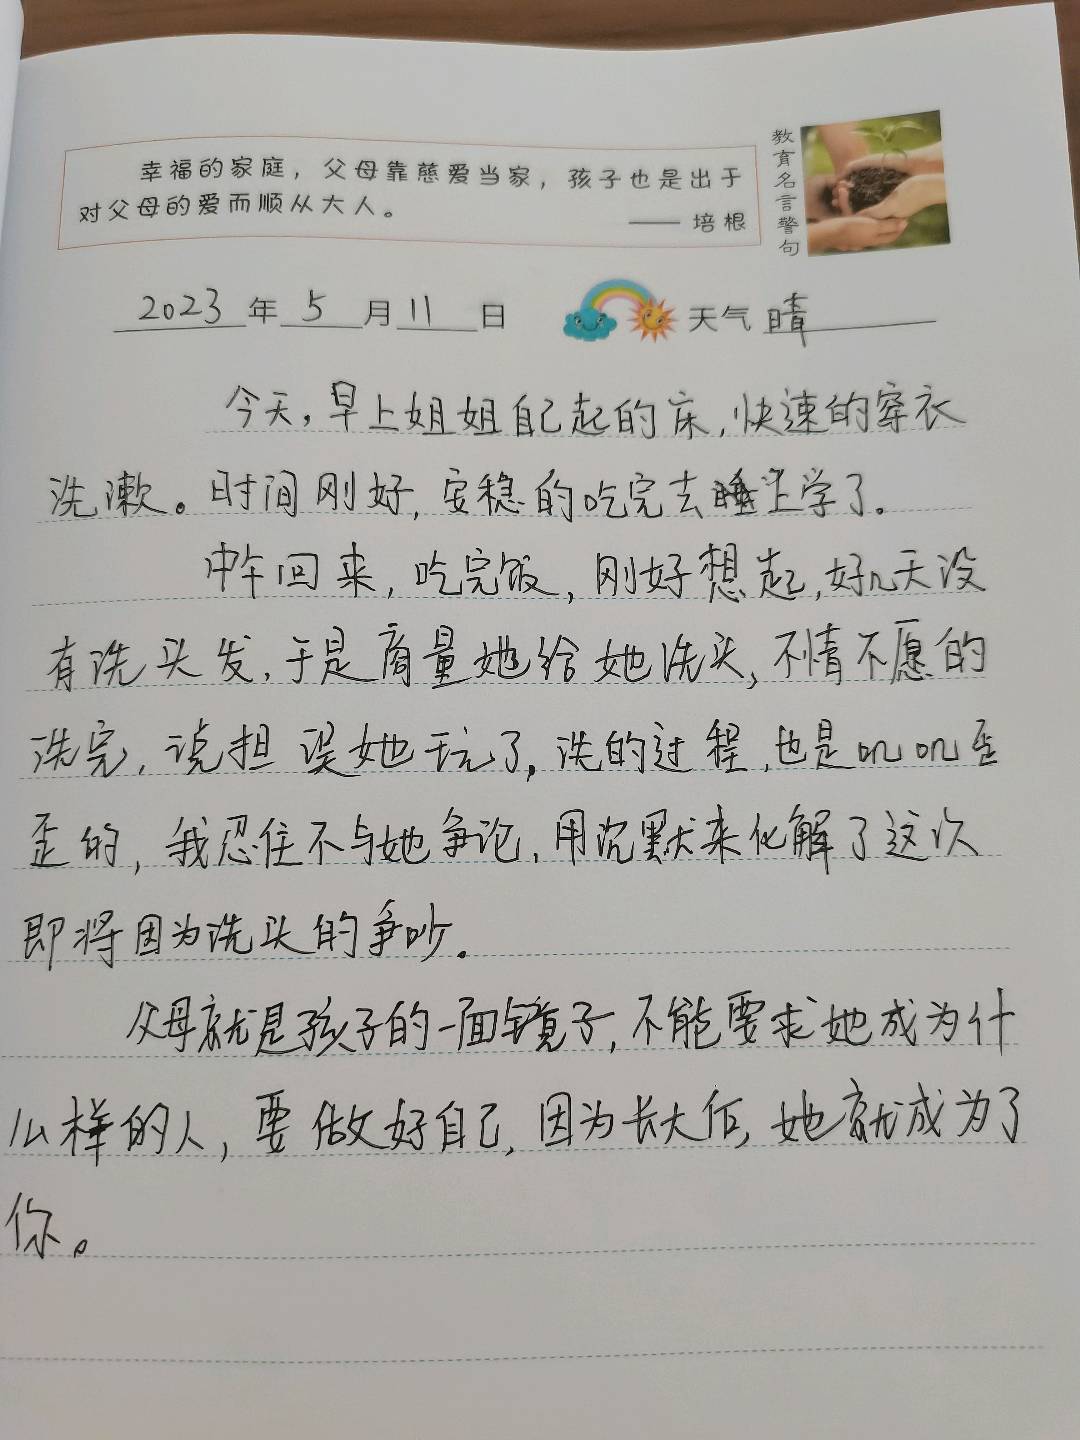 幸福的家庭，父母靠慈爱当家，孩子也是出于
对父母的爱而顺从大人。
—— 培根
教育名言警句
2023年5月11日 天气 晴
今天，早上姐姐自己起的床，快速的穿衣
洗漱。时间刚好，安稳的吃完去上学了。
中午回来，吃完饭，刚好想起，好几天没
有洗头发，于是商量她给她洗头，不情不愿的
洗完，说担误她玩了，洗的过程，也是吱吱歪
歪的，我忍住不与她争论，用沉默来化解了这次
即将因为洗头的争吵。
父母就是孩子的一面镜子，不能要求她成为什
么样的人，要做好自己，因为长大后，她就成为了
你。